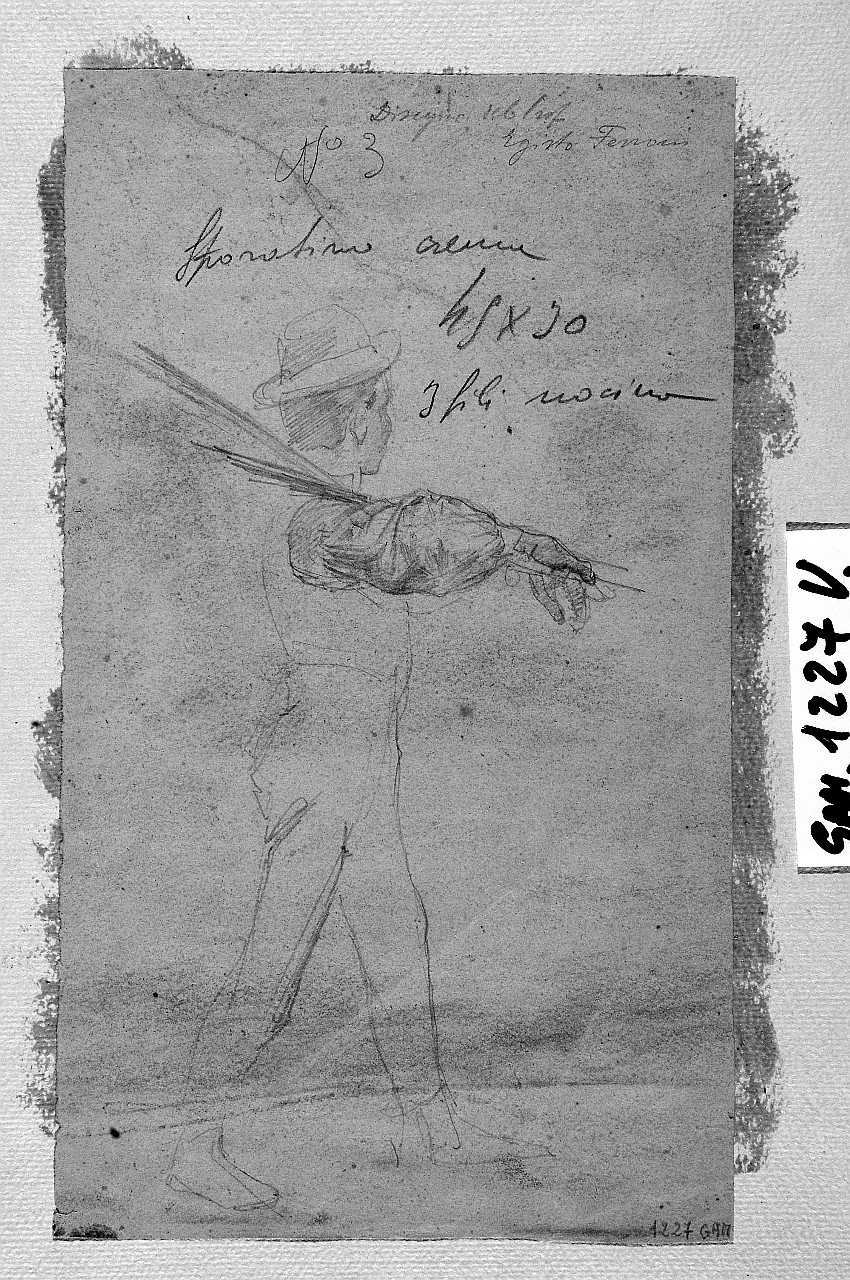 Disegno del Prof
Egisto Ferroni
No 3
crema
45 X 30
3 fili nocino
GAM. 1227 V.
1227 GAM